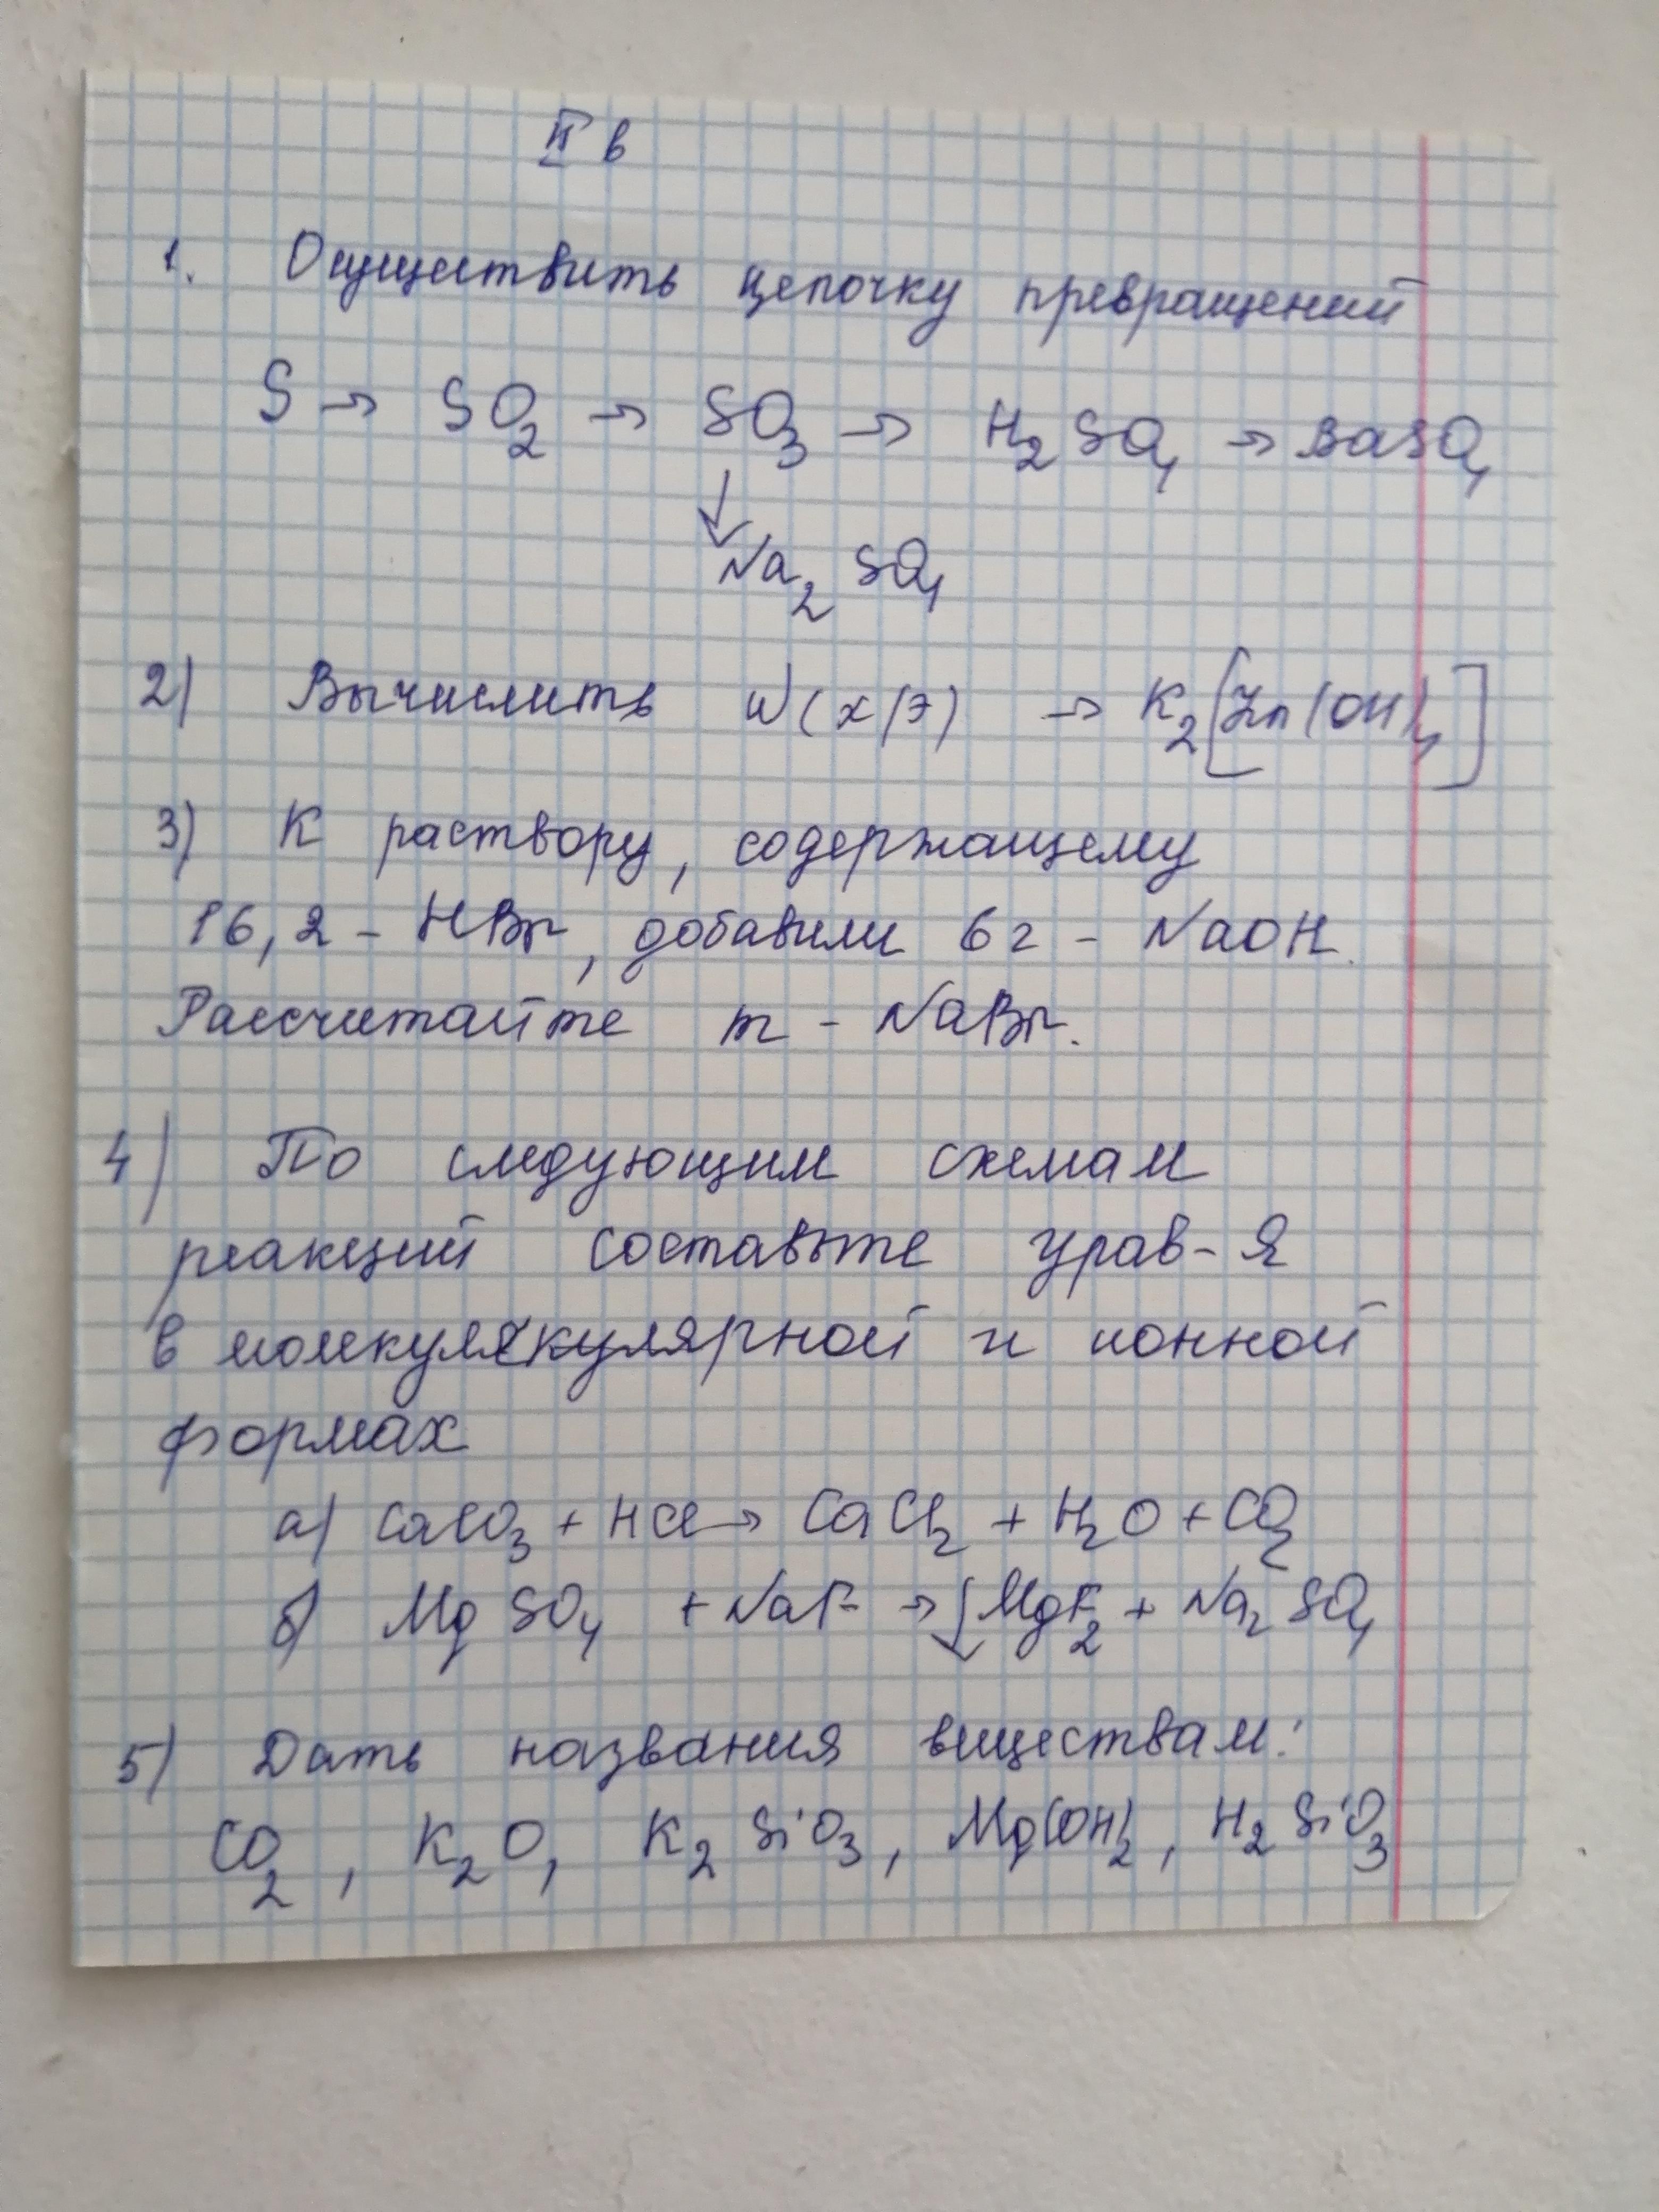 II в
1. Осуществить цепочку превращений
S → SO₂ → SO₃ → H₂SO₄ → BaSO₄
↓
Na₂SO₄
2) Вычислить w(х/э) → K₂[Zn(OH)₄]
3) К раствору, содержащему
16,2 - HBr, добавили 6г - NaOH.
Рассчитайте m - NaBr.
4) По следующим схемам
реакций составьте урав-я
в молекулекулярной и ионной
формах
а) CaCO₃ + HCl → CaCl₂ + H₂O + CO₂
б) MgSO₄ + NaF → ↓MgF₂ + Na₂SO₄
5) Дать названия веществам:
CO₂, K₂O, K₂SiO₃, Mg(OH)₂, H₂SiO₃